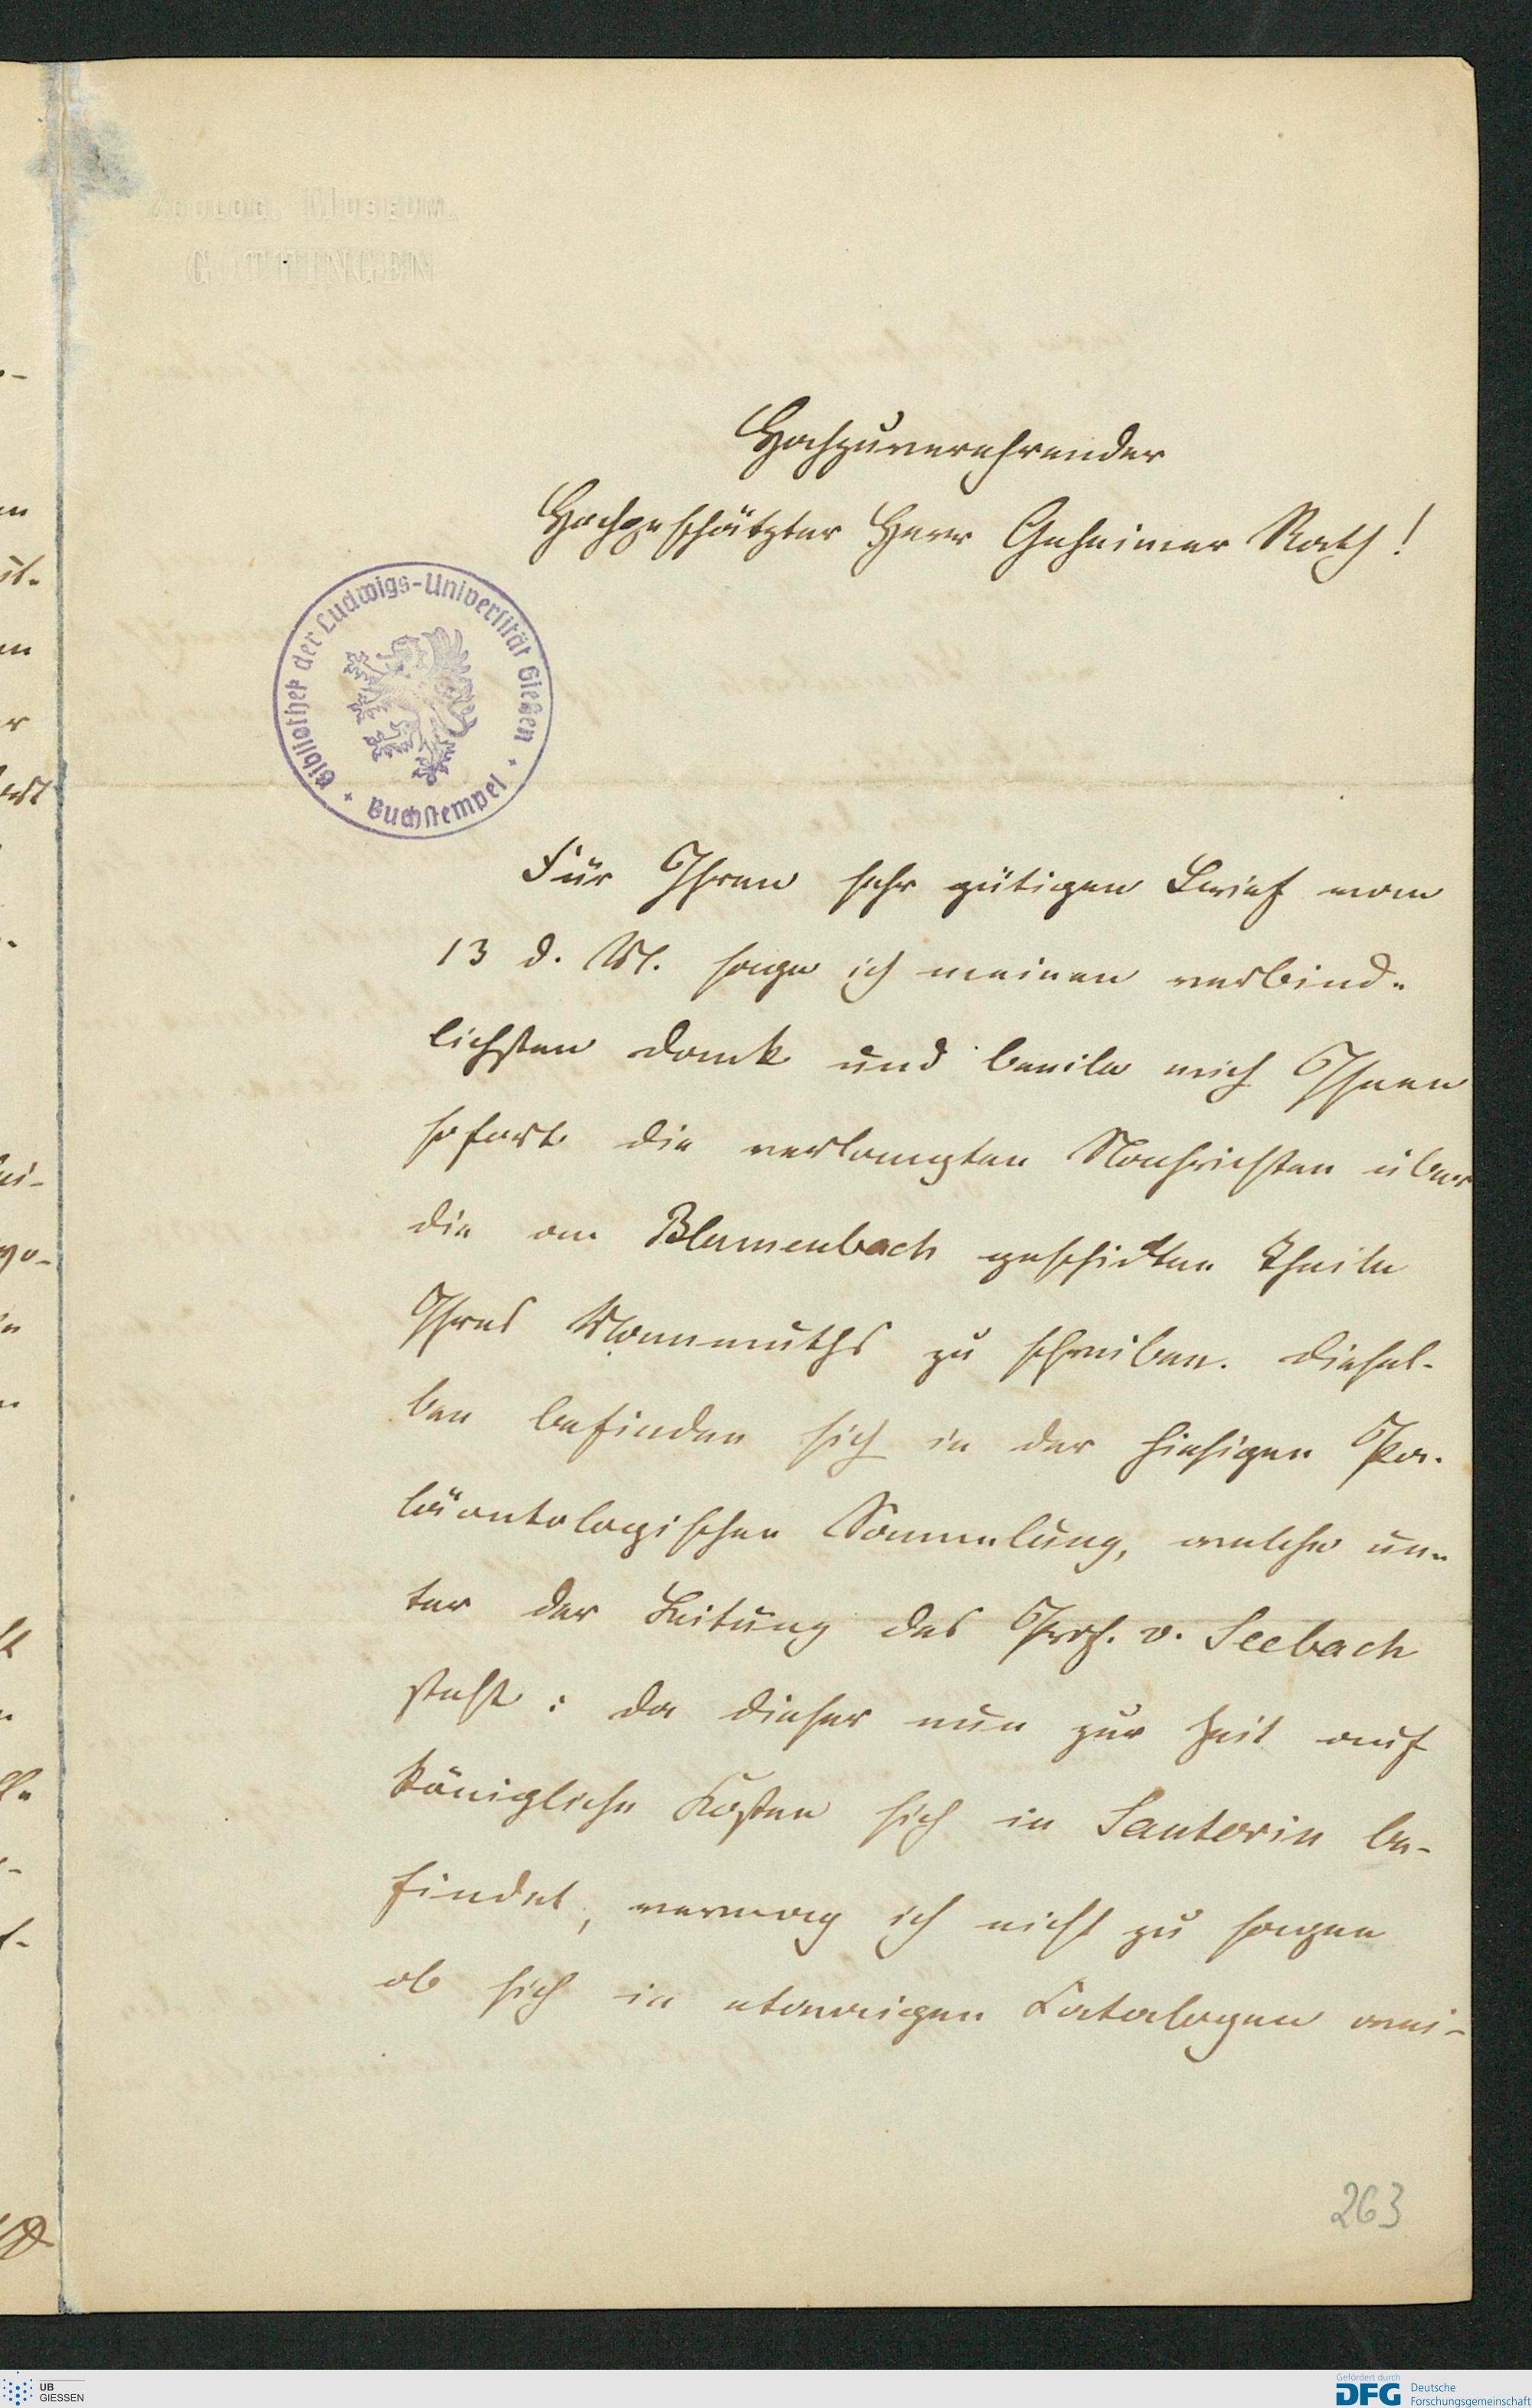 Zoolog. Museum.
GÖTTINGEN
Hochzuverehrender
Hochgeschätzter Herr Geheimer Rath!
Bibliothek der Ludwigs-Universität Gießen
Buchstempel
Für Ihren sehr gütigen Brief vom
13 d. M. sage ich meinen verbind-
lichsten Dank und beeile mich Ihnen
sofort die verlangten Nachrichten über
die an Blumenbach geschickten Theile
Ihres Mammuths zu schreiben. Diesel-
ben befinden sich in der hiesigen Pa-
läontologischen Sammlung, welche un-
ter der Leitung des Prof. v. Seebach
steht: da dieser nun zur Zeit auf
Königliche Kosten sich in Santorin be-
findet, vermag ich nicht zu sagen
ob sich in etwaigen Catalogen wei-
263
UB
GIESSEN
Gefördert durch
DFG Deutsche
Forschungsgemeinschaft